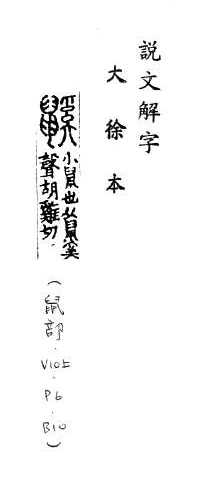 説文解字
大徐本
鼷 小鼠也从鼠奚
聲胡雞切
(鼠部.V10上.P6.B10)